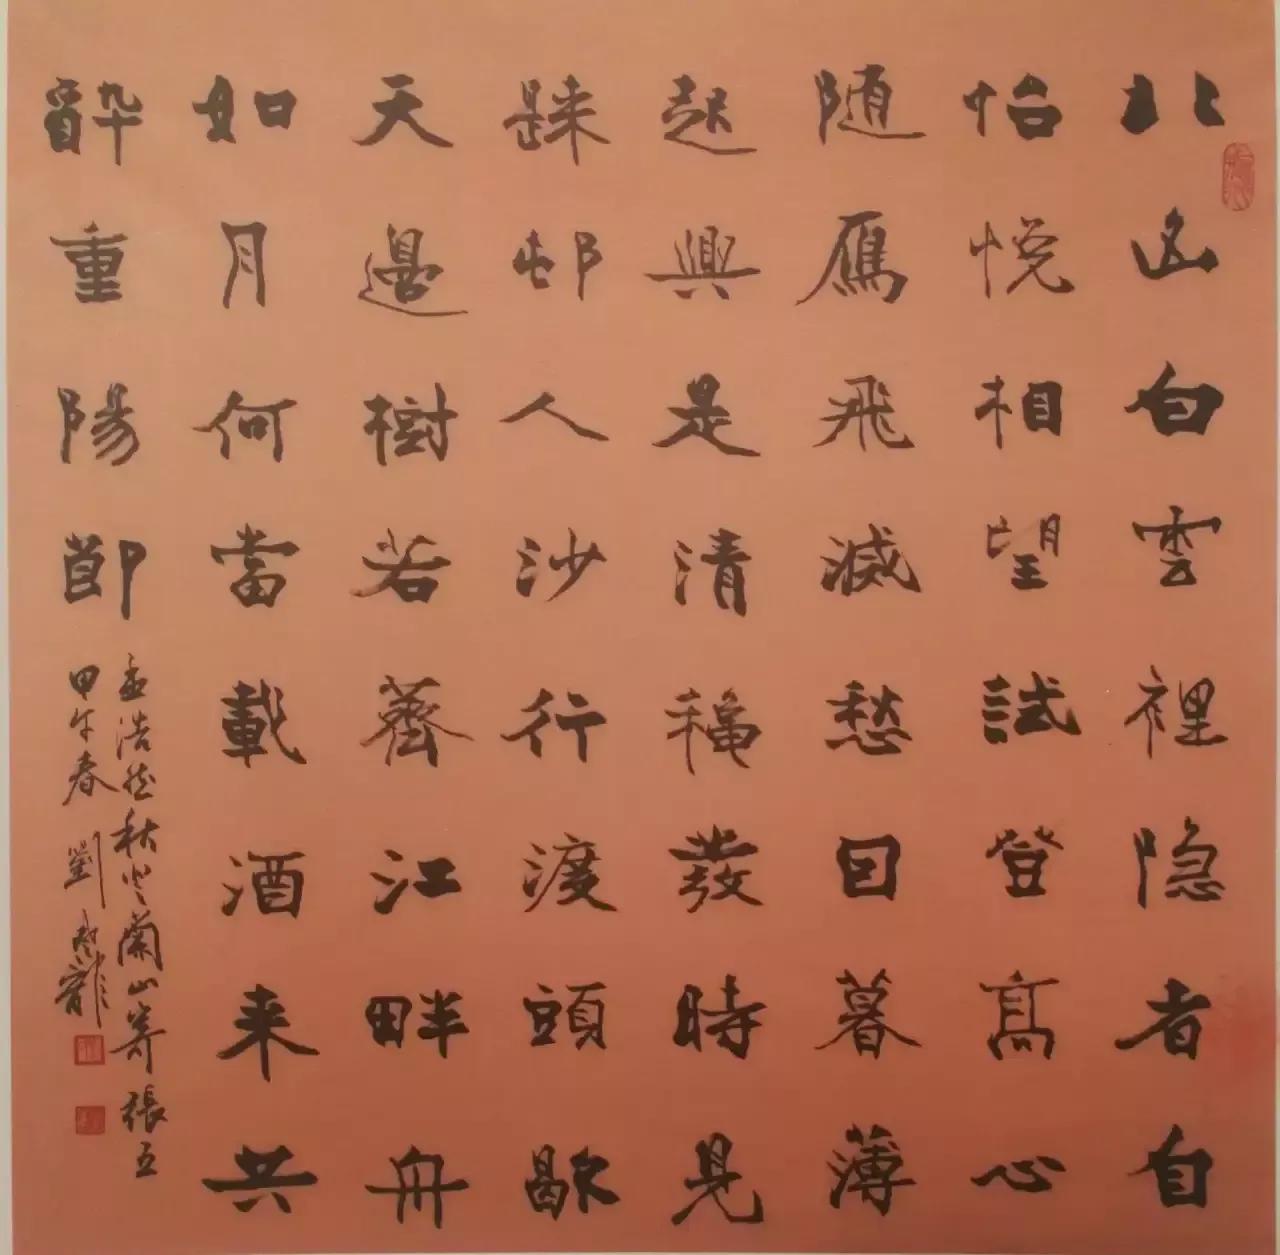 北山白雲裡隐者自
怡悦相望試登高心
随雁飛滅愁因暮薄
起興是清穐發時見
歸邨人沙行渡頭歇
天邊樹若薺江畔舟
如月何當載酒来共
醉重陽節
孟浩然秋登蘭山寄張五
甲午春 劉